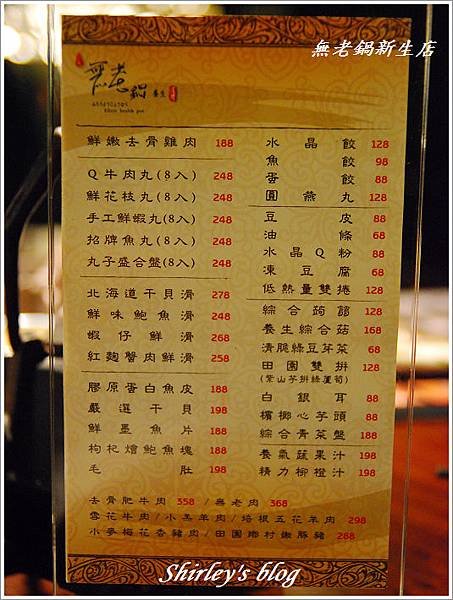 無老鍋新生店
無老鍋
養生
鮮嫩去骨雞肉 188
Q牛肉丸(8入) 248
鮮花枝丸(8入) 248
手工鮮蝦丸(8入) 248
招牌魚丸(8入) 248
丸子盛合盤(8入) 248
北海道干貝滑 278
鮮味鮑魚滑 248
蝦仔鮮滑 268
紅麴蟹肉鮮滑 258
膠原蛋白魚皮 188
嚴選干貝 198
鮮墨魚片 188
枸杞燴鮑魚塊 188
毛肚 198
水晶餃 128
魚餃 98
蛋餃 88
圓燕丸 128
豆皮 88
油條 68
水晶Q粉 88
凍豆腐 68
低熱量雙捲 128
綜合蒟蒻 128
養生綜合菇 168
清脆綠豆芽菜 68
田園雙拼 128
(紫山芋拼綠蘆筍)
白銀耳 88
檳榔心芋頭 88
綜合青菜盤 188
養氣蔬果汁 198
精力柳橙汁 198
去骨肥牛肉 358 / 無老肉 368
雪花牛肉/小羔羊肉/培根五花羊肉 298
小麥梅花香豬肉/田園鄉村嫩豚豬 288
Shirley's blog